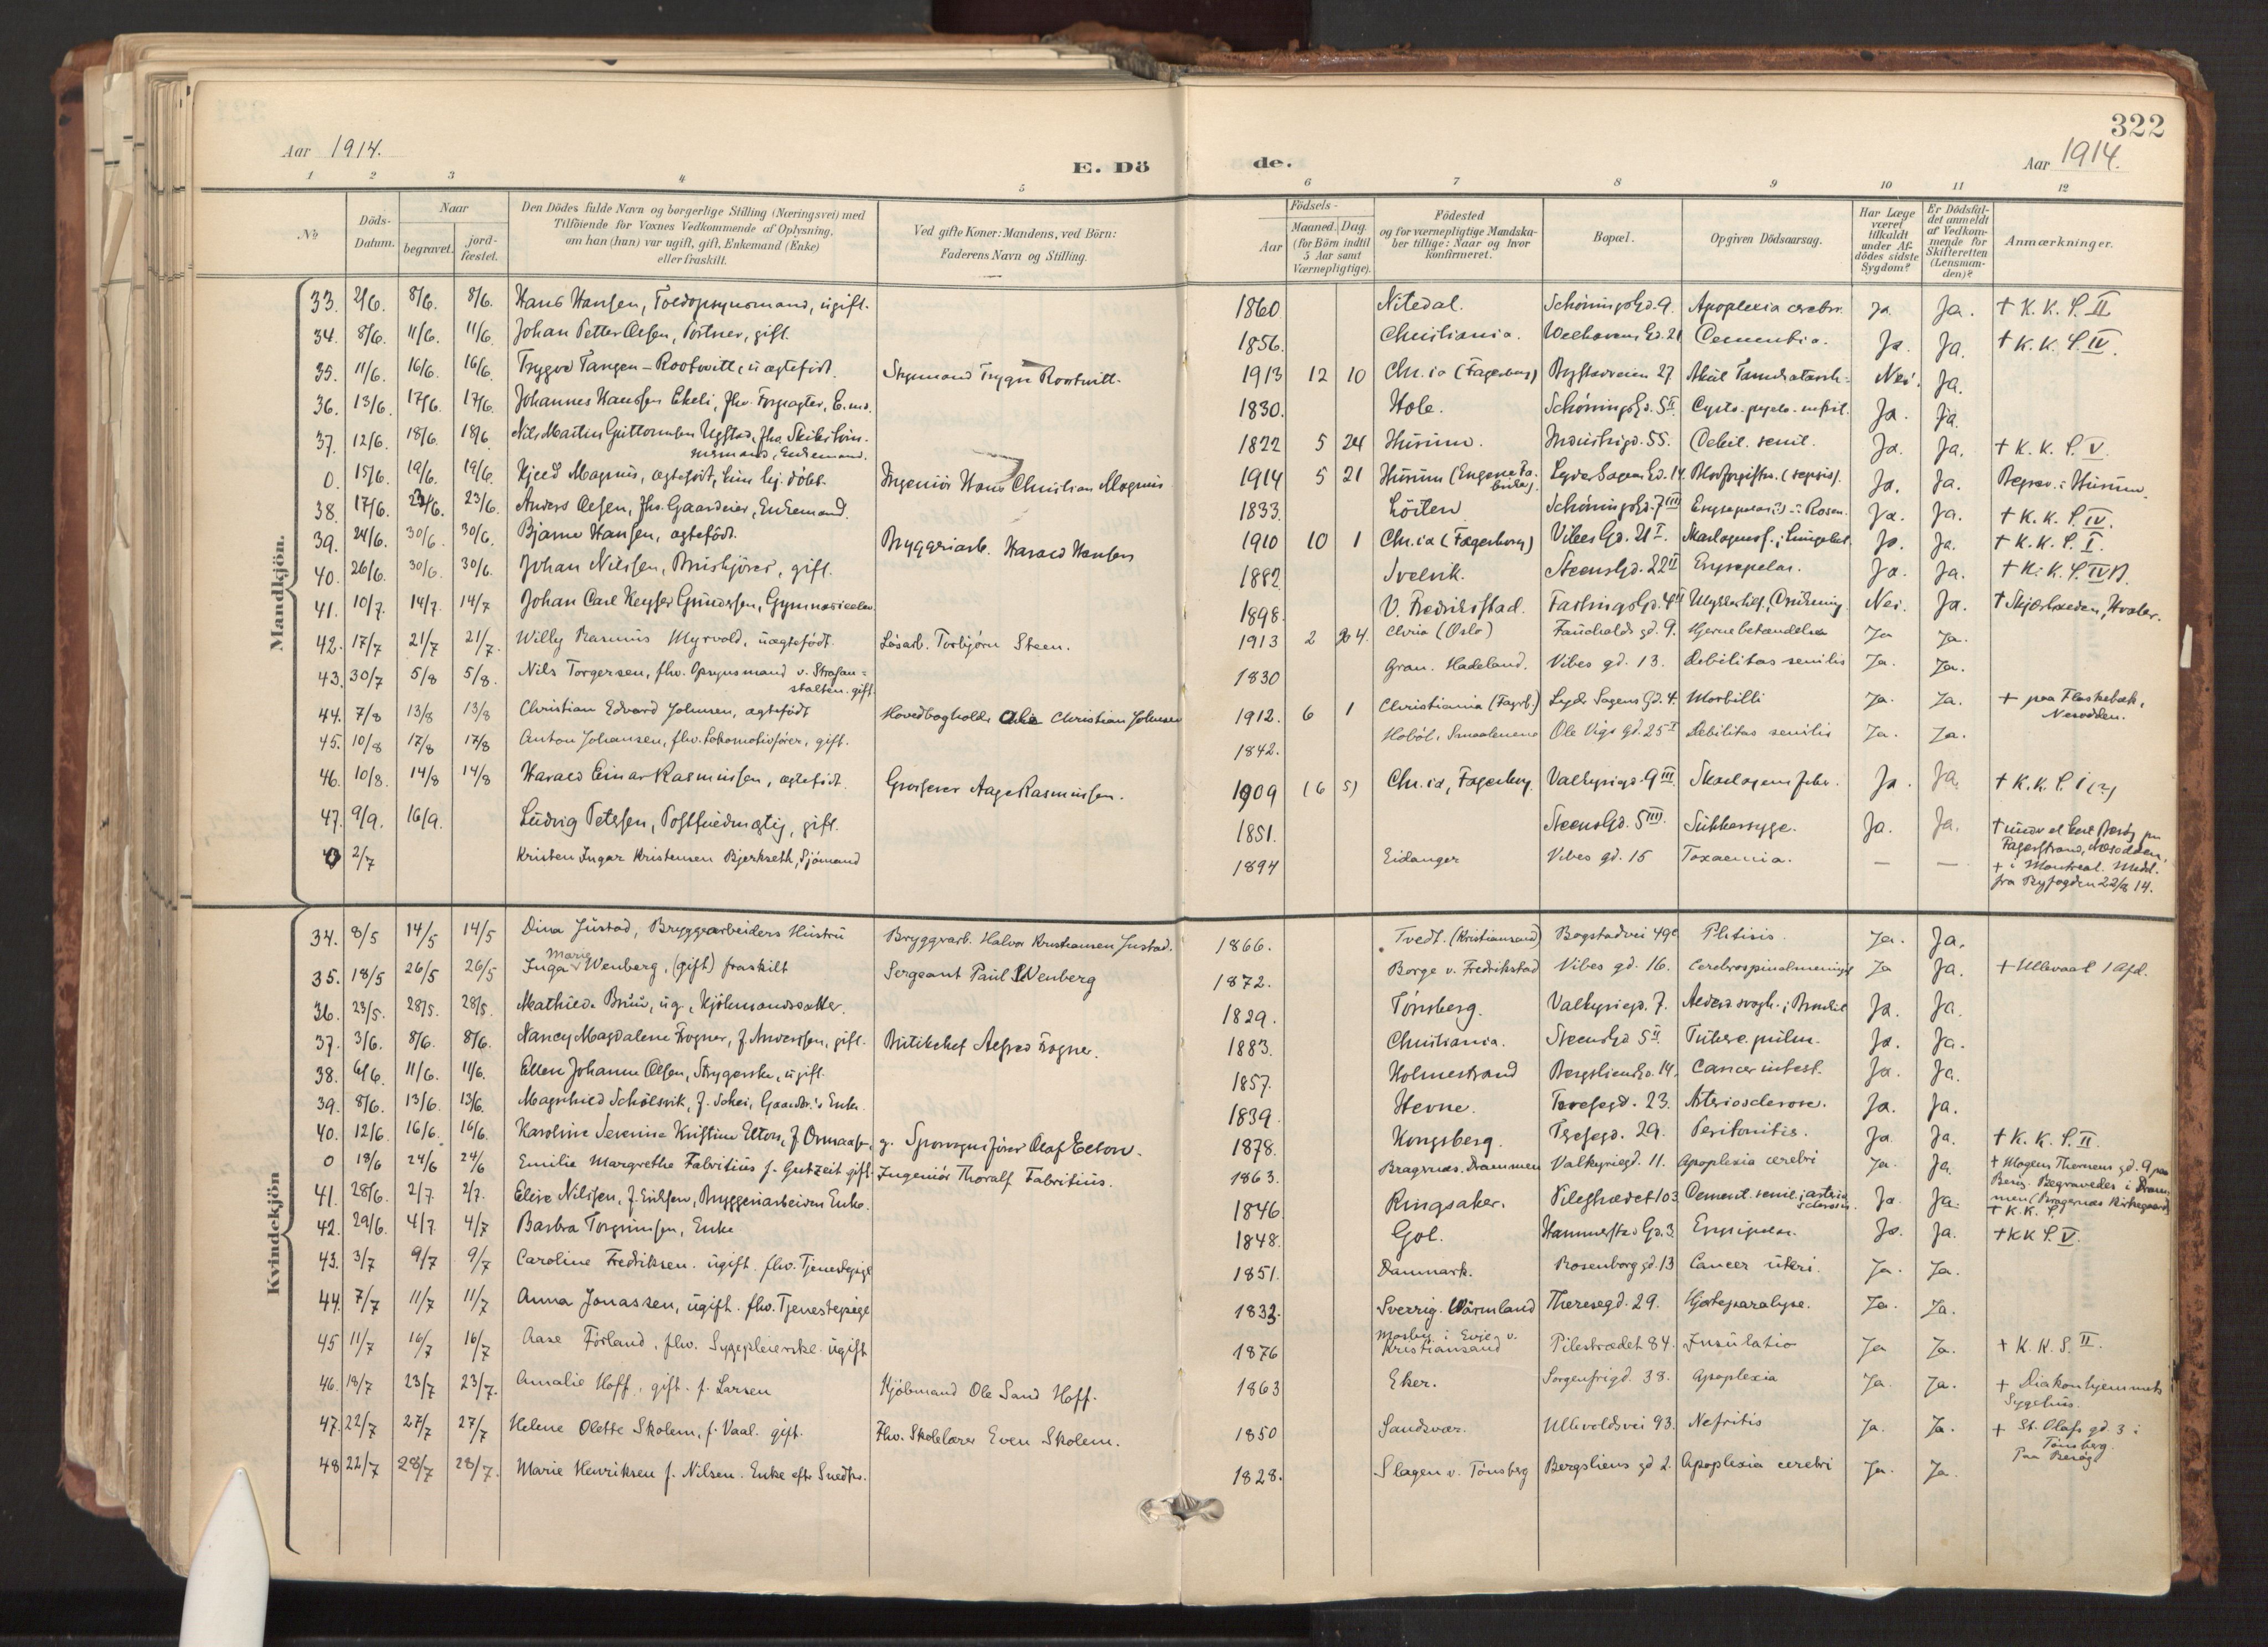 322
Aar 1914.
E. Dö de.
Aar 1914.
1 2 3 4 5 6 7 8 9 10 11 12
No.
Döds-Datum.
Naar
begravet.
jord-fæstet.
Den Dödes fulde Navn og borgerlige Stilling (Næringsvei) med
Tilföiende for Voxnes Vedkommende af Oplysning,
om han (hun) var ugift, gift, Enkemand (Enke)
eller fraskilt.
Ved gifte Koner: Mandens, ved Börn:
Faderens Navn og Stilling.
Födsels-
Aar
Maaned. Dag.
(for Börn indtil
5 Aar samt
Værnepligtige).
Födested
og for værnepligtige Mandska-
ber tillige: Naar og hvor
konfirmeret.
Bopæl.
Opgiven Dödsaarsag.
Har Læge
været
tilkaldt
under Af-
dödes sidste
Sygdom?
Er Dödsfal-
det anmeldt
af Vedkom-
mende for
Skifteretten
(Lensman-
den)?
Anmærkninger.
Mandkjön.
33. 2/6. 8/6. 8/6. Hans Hansen, Toldopsynsmand, ugift. 1860 Nitedal. Schöningsgd. 9. Apoplexia cerebri. Ja. Ja. + K. K. S. II
34. 8/6. 11/6. 11/6. Johan Petter Olsen, Portner, gift. 1856. Christiania. Welhavens Gd. 21 Dementia. Ja. Ja. + K. K. S. IV.
35. 11/6. 16/6. 16/6. Trygve Tangen - Rootwitt, uægtefödt. Styrmand Trygve Rootwitt. 1913 12 10 Chr.ia (Fagerborg) Bogstadveien 27 Akut Nei. Ja.
36. 13/6. 17/6. 17/6. Johannes Hansen Ekeli, fhv. Forpagter, E.md. 1830. Hole. Schöningsgd. 5 II. Cysto-pyelo-nefrit. Ja. Ja.
37. 12/6. 18/6. 18/6 Nils Martin Guttormsen Ugstad, fhv. Skibstöm-
mermand, Enkemand. 1822 5 24 Hurum. Industrigd. 55. Debil. senil. Ja. Ja. + K. K. S. V.
0. 15/6. 19/6. 19/6. Kjeld Magnus, ægtefödt, hj. döbt. Ingeniör Hans Christian Magnus 1914 5 21 Hurum (Engene Lyder Sagens Gd. 14 Blodforgiftn. (sepsis). Ja. Ja. Begrav. i Hurum.
38. 17/6. 23/6. 23/6. Anders Olsen, fhv. Gaardeier, Enkemand. 1833. Löiten Schöningsgd. 7 III Erysepelas Rosen. Ja. Ja. + K. K. S. IV.
39. 24/6. 30/6. 30/6. Bjarne Hansen, ægtefödt. Bryggeriarb. Harald Hansen 1910 10 1 Chr.ia (Fagerborg) Vibes Gd. 21 I. Skarlagensf.; Lungebet. Ja. Ja. + K. K. S. I.
40. 26/6. 30/6. 30/6. Johan Nilssen, Brushjörer, gift. 1882. Svelvik. Steensgd. 22 II Erysepelas. Ja. Ja. + K. K. S. IV B.
41. 10/7. 14/7. 14/7 Johan Carl Keyser Gundersen, Gymnasieelev 1898. V. Fredriksstad. Fastingsgd. 4 II Ulykkestilf., Drukning. Nei. Ja. + Skjærhalden, Hvaler.
42. 17/7 21/7 21/7. Willy Rasmus Myrvold, uægtefödt. Lösarb. Torbjörn Steen. 1913 2 24. Chria (Oslo) Fauchalds gd. 9. Hjernebetændelse Ja Ja.
43. 30/7 5/8 5/8. Nils Torgersen, fhv. Opsynsmand v. Strafan=
stalten. gift. 1830 Gran. Hadeland. Vibes gd. 13. Debilitas senilis Ja. Ja.
44. 7/8 13/8 13/8 Christian Edvard Johnsen, ægtefödt Hovedbogholder Ole Christian Johnsen 1912. 6 1 Christiania (Fagrb.) Lyder Sagens Gd. 4. Morbilli Ja. Ja. + paa Flaskebæk,
Nesodden.
45. 10/8 17/8 17/8 Anton Johansen, fhv. Lokomotivförer, gift. 1842. Hoböl, Smaalenene Ole Vigs Gd. 25 I Debilitas senilis Ja. Ja.
46. 10/8 14/8 14/8 Harald Einar Rasmussen, ægtefödt. Grosserer Aage Rasmussen. 1909 (6 5) Chr.ia, Fagerborg. Valkyriegd. 9 III. Skarlagensfeber. Ja. Ja. + K. K. S. I (2)
47. 9/9. 16/9. Ludvig Petersen, Postfuldmægtig, gift. 1851. Steensgd. 5 III. Sukkersyge. Ja. Ja. + under et kort Besög paa
Fagerstrand, Næsodden.
0 2/7 Kristen Ingar Kristensen Bjerkseth, Sjömand 1894 Eidanger Vibes gd. 15 Toxaemia. — — + i Montreal. Medd.
fra Byfogden 22/8 14.
Kvindekjön
34. 8/5 14/5 14/5 Dina Justad, Bryggearbeiders Hustru Bryggearb. Halvor Kristiansen Justad. 1866. Tvedt. (Kristiansand) Bogstadvei 49 Phtisis. Ja. Ja.
35. 18/5 26/5 26/5 Inga Marie Wenberg, (gift) fraskilt Sergeant Paul Wenberg 1872. Borge v. Fredrikstad Vibes gd. 16. Cerebrospinalmeningit Ja Ja. + Ullevaal 1 Afd.
36. 23/5. 28/5. 28/5. Mathilde Bruu, ug., Kjöbmandsdatter. 1829. Tönsberg. Valkyriegd. 7. Alderdsvagh.; Bronkit Ja. Ja.
37. 3/6. 8/6. 8/6. Nancy Magdalene Frogner, f. Andersen, gift. Butikchef Alfred Frogner. 1883. Christiania. Steensgd 5 II. Tuberc. pulm. Ja. Ja.
38. 6/6. 11/6. 11/6. Ellen Johanne Olsen, Strygerske, ugift. 1857. Holmestrand Bergsliensgd. 14. Cancer intest. Ja. Ja.
39. 8/6. 13/6. 13/6. Magnhild Schölsvik, f. Schei, Gaardbr.'s Enke. 1839. Hevne. Teresegd. 23. Arteriosclerose. Ja. Ja.
40. 12/6. 16/6. 16/6. Karoline Severine Kristine Elton, f. g. Sporvognsförer Olaf Elton. 1878. Kongsberg. Tresegd. 29. Peritonitis. Ja. Ja. + K. K. S. II.
0 18/6 24/6 24/6 Emilie Margrethe Fabritius f. Gutzeit gift. Ingeniör Thoralf Fabritius. 1863. Bragernæs. Drammen Valkyriegd. 11. Apoplexia cerebri Ja. Ja. + Mogens Thorsens gd. 9 paa
Besög. Begravedes i Dram-
men (Bragernæs Kirkegaard)
41. 28/6. 2/7. 2/7. Elise Nilssen, f. Eriksen, Bryggeriarbeiders Enke. 1846. Ringsaker. Pilestrædet 103 Dement. senil.; arterio
sclerosis. Ja. Ja. + K. K. S.
42. 29/6. 4/7 4/7 Barbra Torgrimsen, Enke 1848. Gol. Hammerstads Gd. 3. Erysipelas. Ja. Ja. + K K S. V.
43. 3/7 9/7 9/7 Caroline Fredriksen. ugift. fhv. Tjenestepige 1851. Danmark. Rosenborggd. 13 Cancer uteri. Ja. Ja.
44. 7/7 11/7 11/7 Anna Jonassen, ugift. fhv. Tjenestepige 1832. Sverrig. Wärmland Theresegd. 29. Hjerteparalyse. Ja. Ja.
45 11/7 16/7 16/7 Aase Förland, fhv. Sygepleierske. ugift 1876 Mosby i Evje v.
Kristiansand Pilestrædet 84. Insulatio Ja Ja. + K. K. S. II.
46. 18/7 23/7 23/7. Amalie Hoff, gift. f. Larsen Kjöbmand Ole Sand Hoff. 1863 Eker. Sorgenfrigd. 38. Apoplexia Ja. Ja. + Diakonhjemmets
Sygehus.
47. 22/7 27/7 27/7 Helene Olette Skolem, f. Vaal. gift. Fhv. Skolelærer Even Skolem. 1850 Sandsvær. Ullevoldsvei 93. Nefritis Ja. Ja. + St. Olafs gd. 3 i
Tönsberg.
Paa Besög
48 22/7 28/7 28/7. Marie Henriksen f. Nilsen. Enke eft. Snedker. 1828. Slagen v. Tönsberg Bergsliens gd 2. Apoplexia cerebri Ja. Ja.